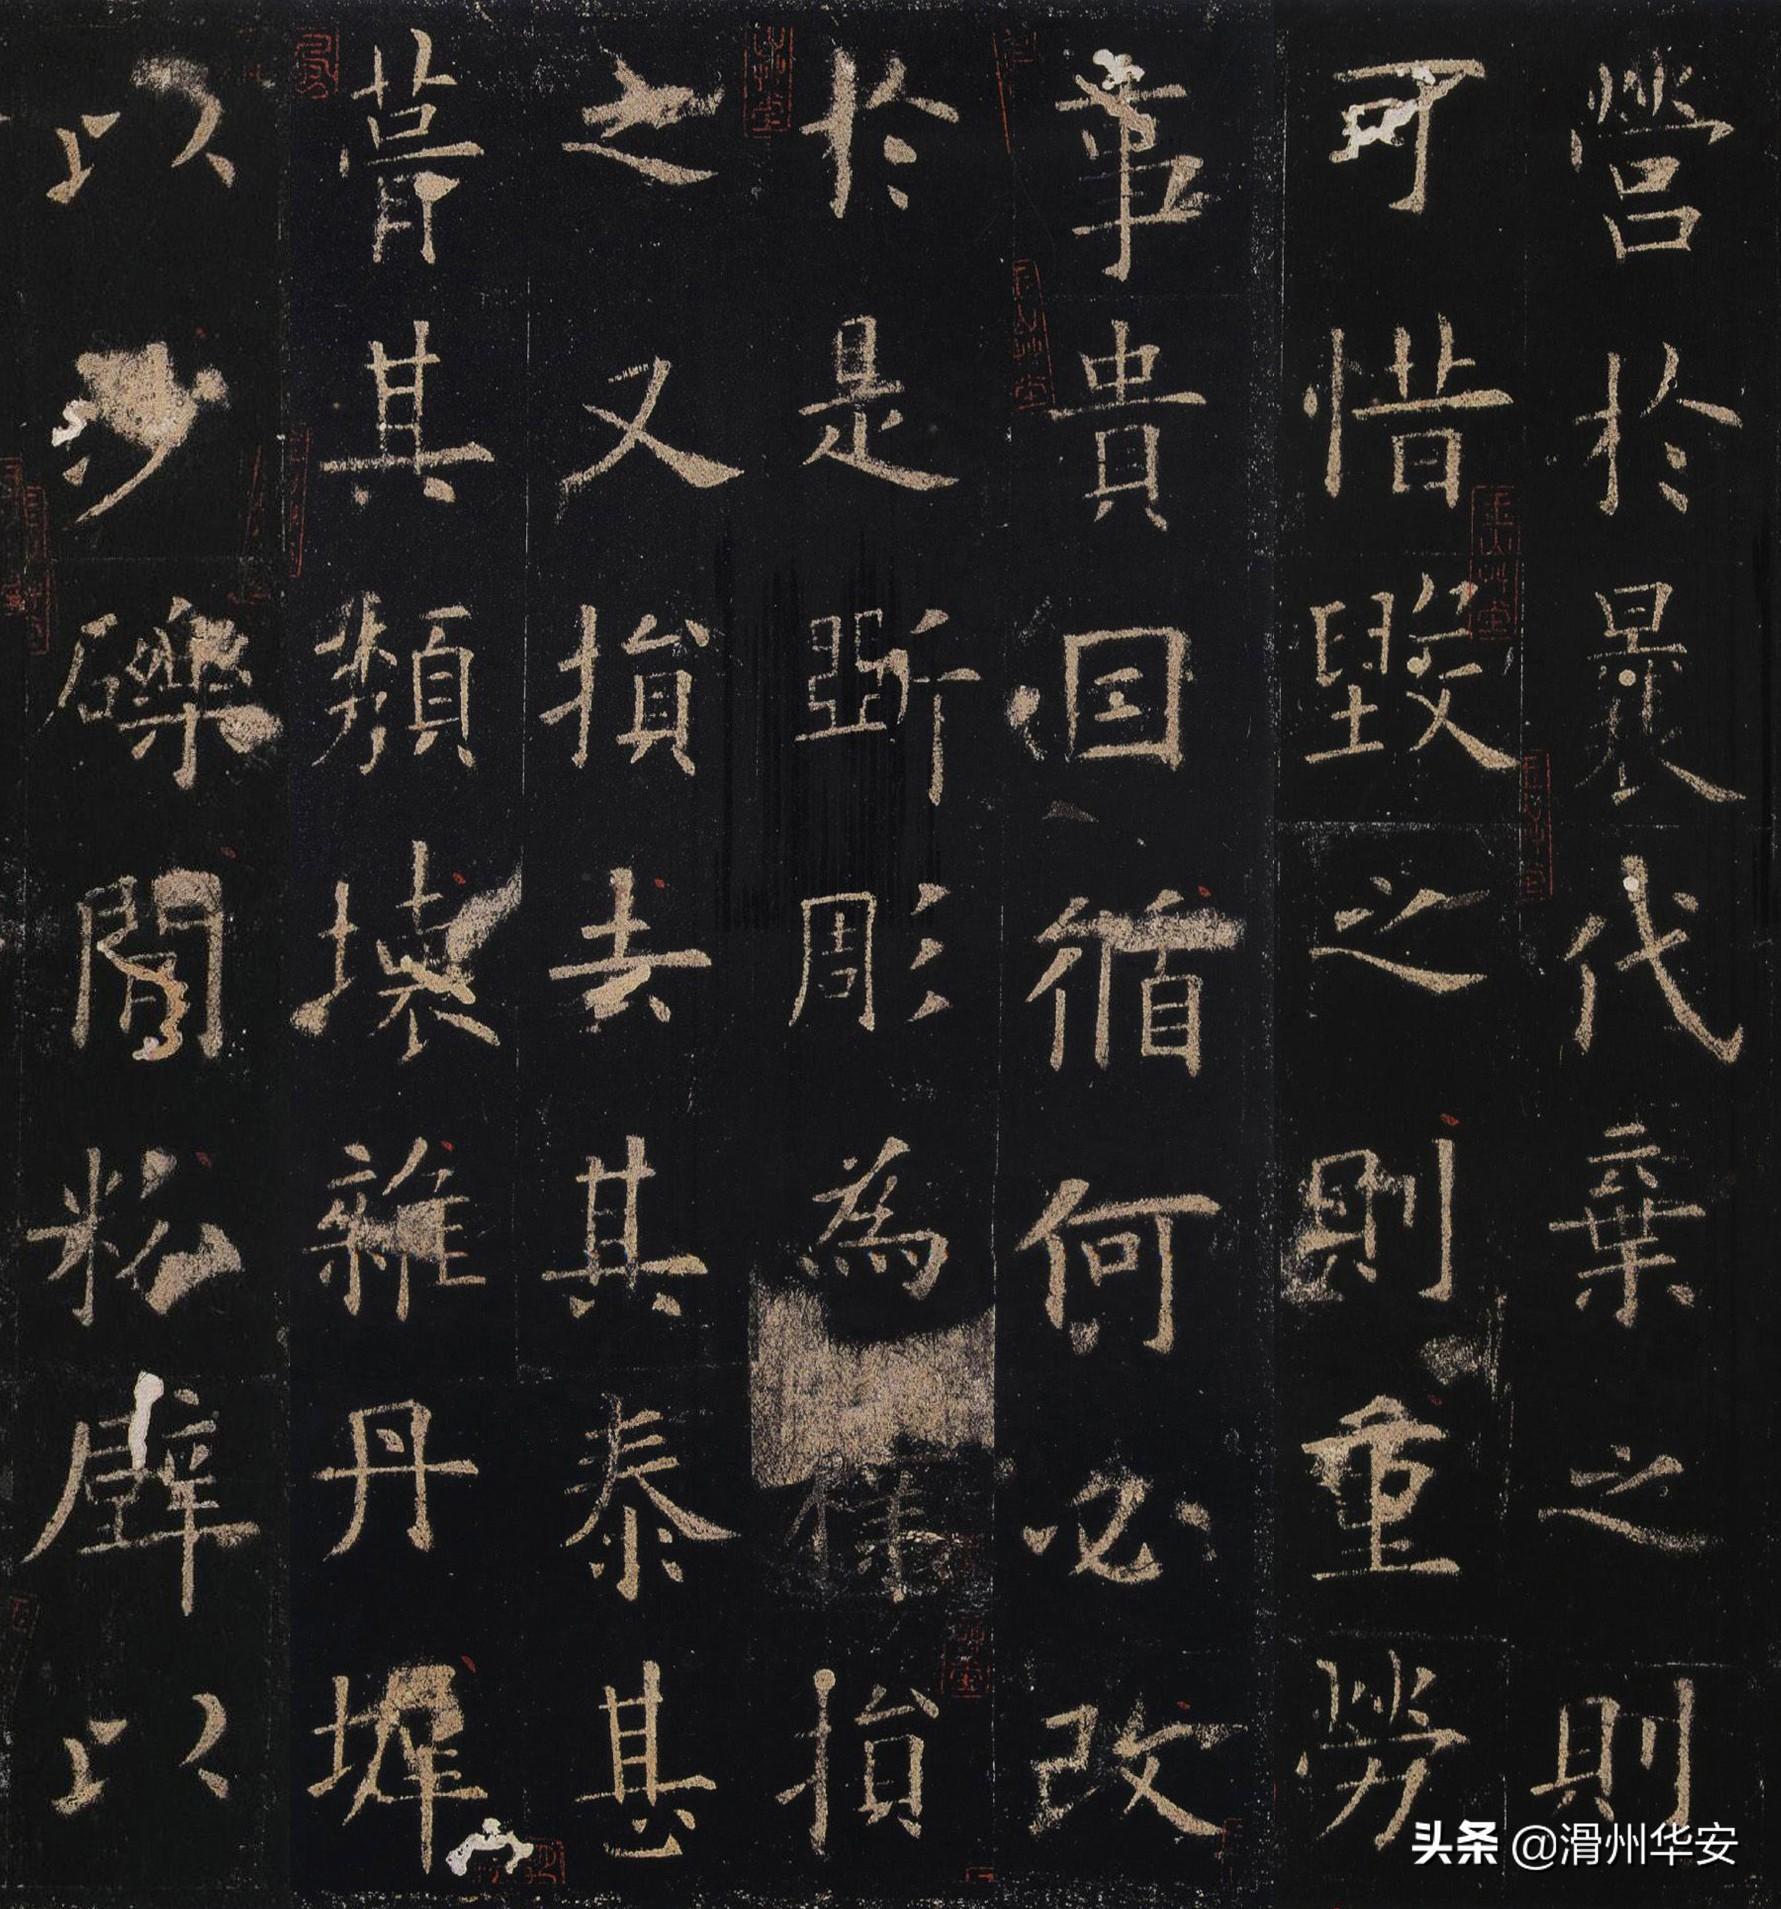 營於曩代棄之則
可惜毀之則重勞
事貴因循何必改
於是斲彫為樸損
之又損去其泰甚
葺其頹壞雜丹墀
以沙礫間粉壁以
头条 @滑州华安